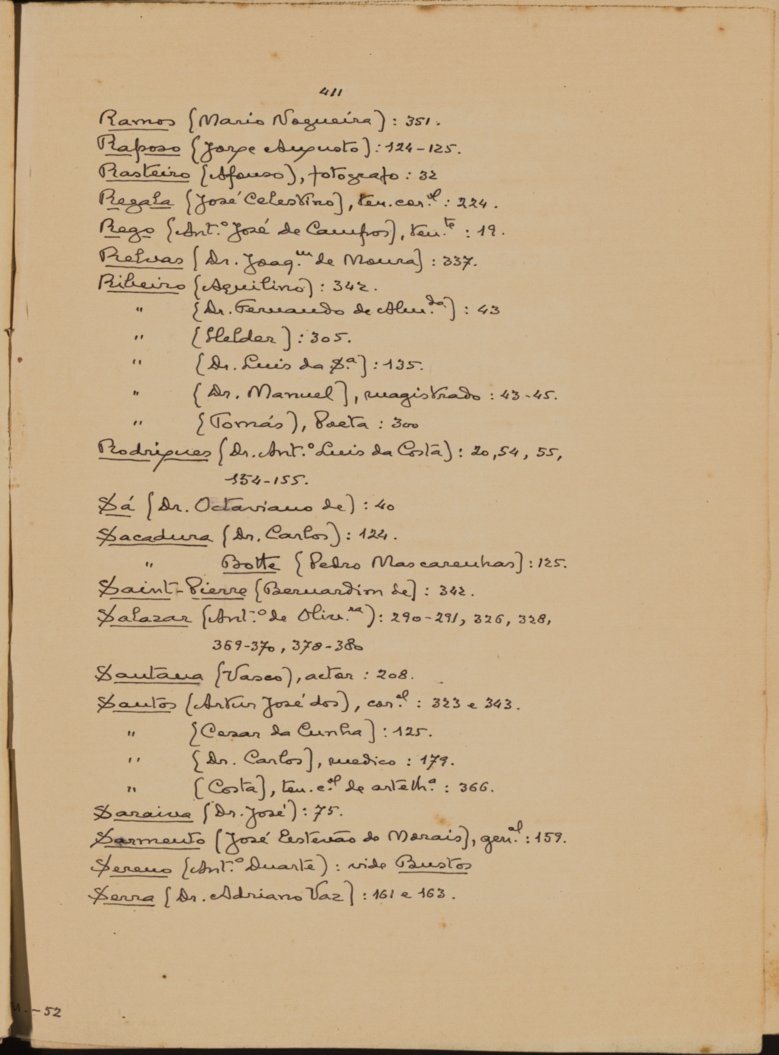 411
Ramos (Mario Nogueira) : 351.
Raposo (Jorge Augusto) : 124-125.
Rasteiro (Afonso), fotografo : 32
Regala (José Celestino), ten. cor.el : 224.
Rego (Ant.º José de Campos), ten.te : 19.
Relvas (Dr. Joaq.m de Moura) : 337.
Ribeiro (Aquilino) : 342.
" (Dr. Fernando de Alm.da) : 43
" (Helder) : 305.
" (Dr. Luis da S.a) : 135.
" (Dr. Manuel), magistrado : 43-45.
" (Tomás), Poeta : 300
Rodrigues (Dr. Ant.º Luis da Costa) : 20, 54, 55,
154-155.
Sá (Dr. Octaviano de) : 40
Sacadura (Dr. Carlos) : 124.
" Botte (Pedro Mascarenhas) : 125.
Saint-Pierre (Bernardim de) : 342.
Salazar (Ant.º de Oliv.ra) : 290-291, 326, 328,
369-370, 378-380
Santana (Vasco), actor : 208.
Santos (Artur José dos), cor.el : 323 e 343.
" (Cesar da Cunha) : 125.
" (Dr. Carlos), medico : 179.
" (Costa), ten. c.el de artelh.a : 366.
Saraiva (Dr. José) : 75.
Sarmento (José Estevão de Morais), gen.al : 159.
Sereno (Ant.º Duarte) : vide Bustos
Serra (Dr. Adriano Vaz) : 161 e 163.
-52